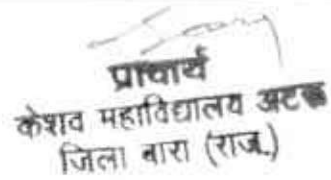 प्राचार्य
केशव महाविद्यालय अटरू
जिला बारा (राज.)